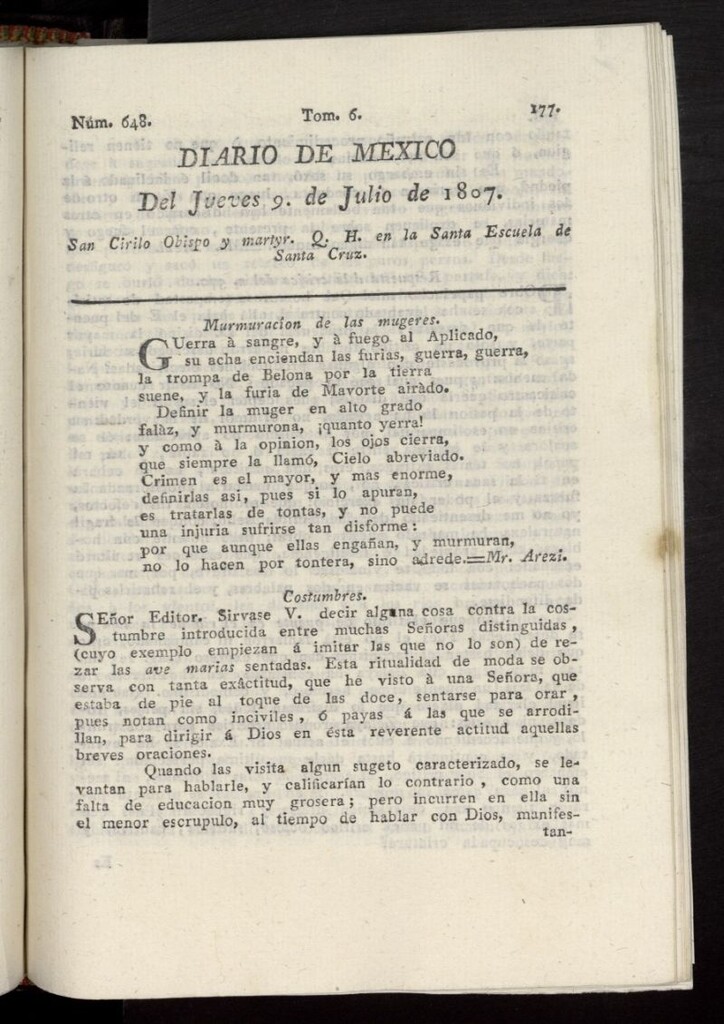 Núm. 648. Tom. 6. 177.
DIARIO DE MEXICO
Del Jueves 9. de Julio de 1807.
San Cirilo Obispo y martyr. Q. H. en la Santa Escuela de
Santa Cruz.
Murmuracion de las mugeres.
GUerra à sangre, y à fuego al Aplicado,
su acha enciendan las furias, guerra, guerra,
la trompa de Belona por la tierra
suene, y la furia de Mavorte airàdo.
Definir la muger en alto grado
falàz, y murmurona, ¡quanto yerra!
y como à la opinion, los ojos cierra,
que siempre la llamó, Cielo abreviado.
Crimen es el mayor, y mas enorme,
definirlas asi, pues si lo apuran,
es tratarlas de tontas, y no puede
una injuria sufrirse tan disforme:
por que aunque ellas engañan, y murmuran,
no lo hacen por tontera, sino adrede.=Mr. Arezi.
Costumbres.
SEñor Editor. Sirvase V. decir alguna cosa contra la cos-
tumbre introducida entre muchas Señoras distinguidas,
(cuyo exemplo empiezan á imitar las que no lo son) de re-
zar las ave marias sentadas. Esta ritualidad de moda se ob-
serva con tanta exâctitud, que he visto à una Señora, que
estaba de pie al toque de las doce, sentarse para orar,
pues notan como inciviles, ó payas á las que se arrodi-
llan, para dirigir á Dios en ésta reverente actitud aquellas
breves oraciones.
Quando las visita algun sugeto caracterizado, se le-
vantan para hablarle, y calificarían lo contrario, como una
falta de educacion muy grosera; pero incurren en ella sin
el menor escrupulo, al tiempo de hablar con Dios, manifes-
tan-